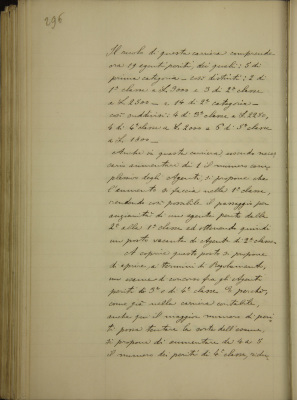 296
Il ruolo di questa carriera comprende
ora 19 agenti periti, dei quali: 5 di
prima categoria — così distinti: 2 di
1ª classe a L. 3000 e 3 di 2ª classe
a L. 2500 — e 14 di 2ª categoria —
così suddivisi: 4 di 3ª classe a L. 2250,
4 di 4ª classe a L. 2000 e 6 di 5ª classe
a L. 1800 —
Anche in questa carriera essendo neces
sario aumentare di 2 il numero com-
plessivo degli Agenti, si propone che
l'aumento si faccia nella 1ª classe,
rendendo così possibile il passaggio per
anzianità di un agente perito dalla
2ª alla 1ª classe ed ottenendo quindi
un posto vacante di Agente di 2ª classe.
A coprire questo posto si propone
di aprire, a termini di Regolamento,
un esame di concorso fra gli Agenti
periti di 3ª e di 4ª classe. E perchè,
come già nella carriera contabile,
anche qui il maggior numero di peri-
ti possa tentare la sorte dell'esame,
si propone di aumentare da 4 a 8
il numero dei periti di 4ª classe,